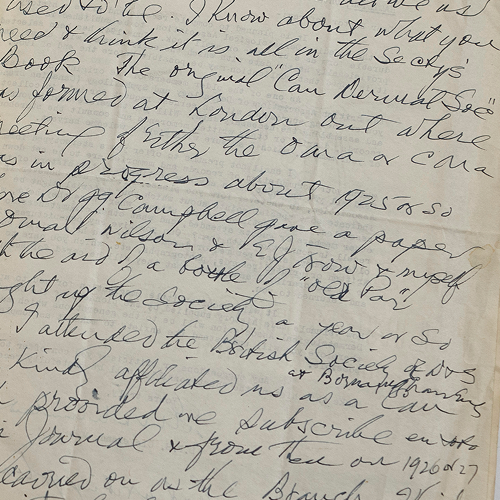 used to be. I Know about what you
need & think it is all in the Secty's
Book The original "Can Dermat Soc"
as formed at London Ont where
meeting of Either the Oma or CMa
as in progress about 1925 or so
Dr gg. Campbell gave a paper
Wilson & E J Trow & myself
the aid of a bottle of "Old Par"
the Society a year or so
I attended the British Society of D & S
at Birmingham
Kindly affiliated us as a Can
provided we subscribe
Journal & from then on 1926 or 27
carried on as the Branch